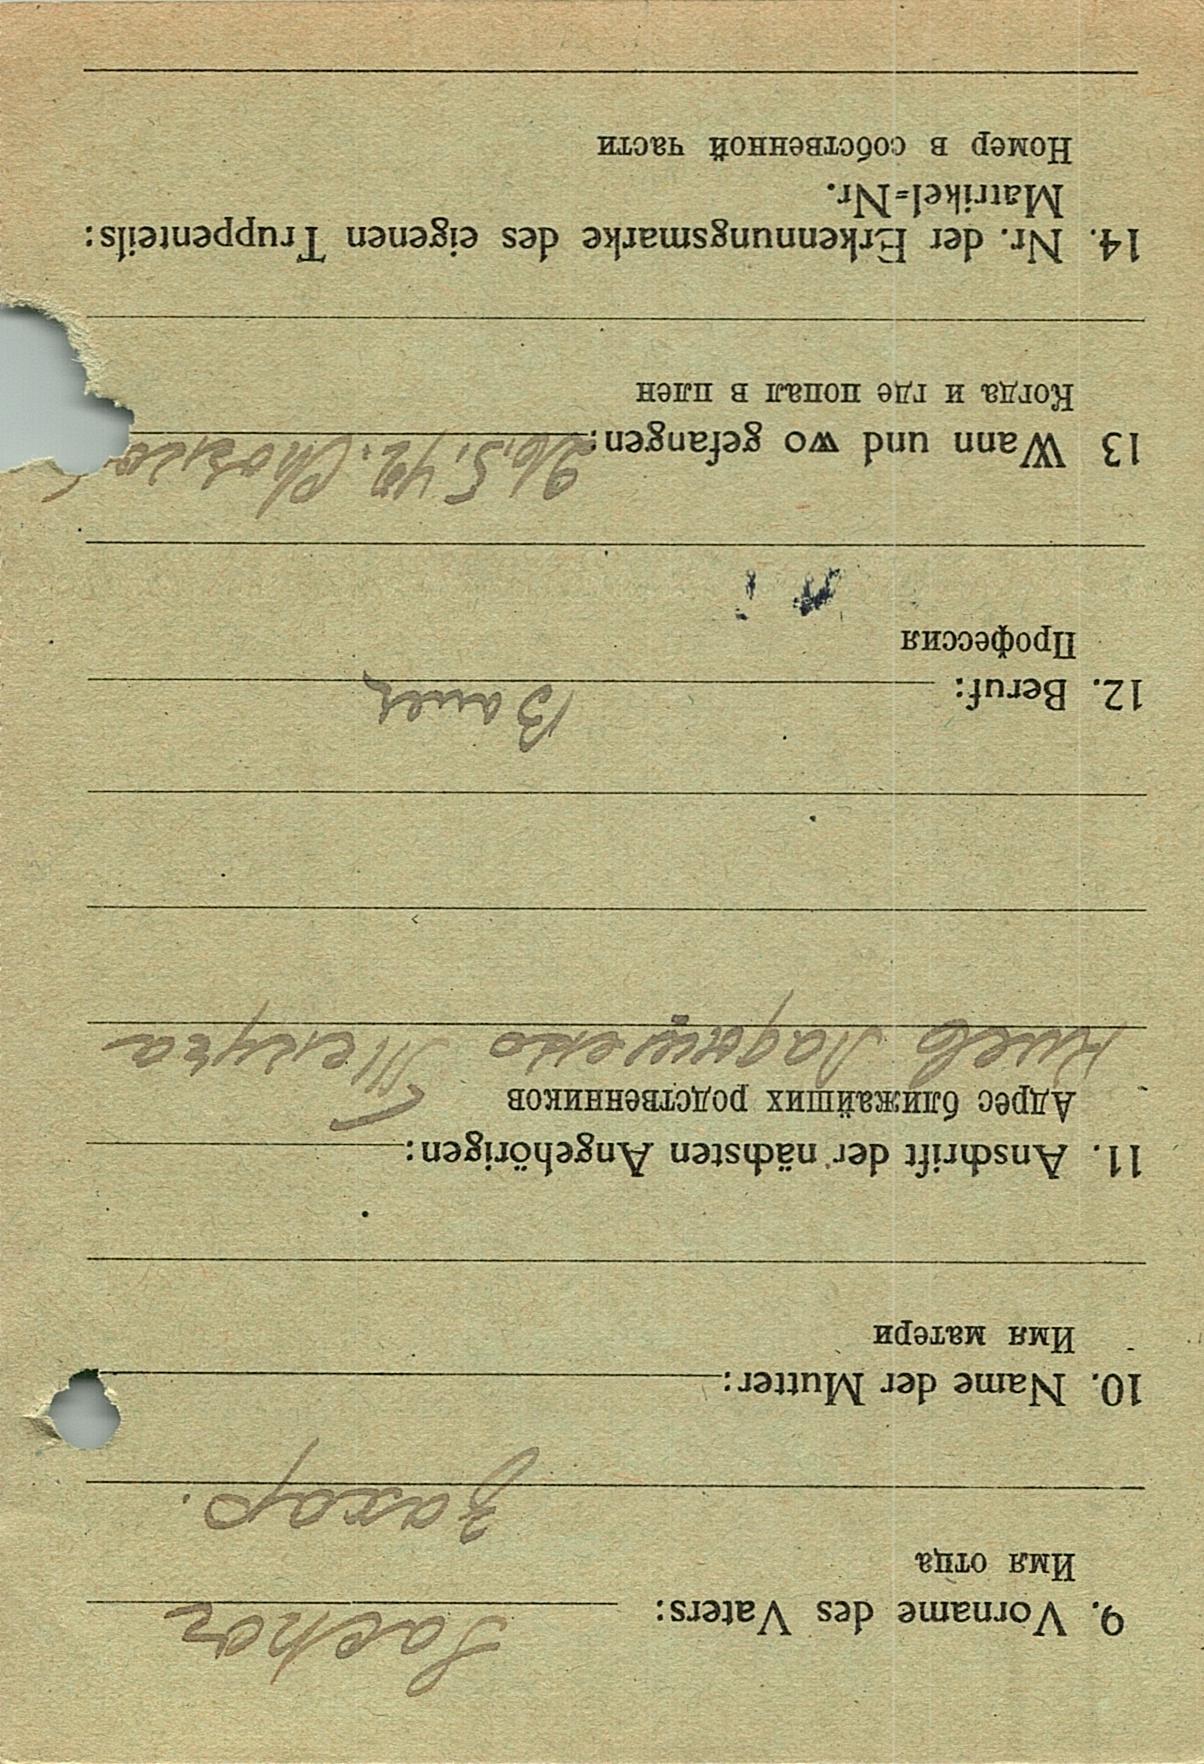 9. Vorname des Vaters: Sachor
Имя отца
Захар.
10. Name der Mutter:
Имя матери
11. Anschrift der nächsten Angehörigen:
Адрес ближайших родственников
Киев
12. Beruf: Bauer
Профессия
13 Wann und wo gefangen: 26.5.42.
Когда и где попал в плен
14. Nr. der Erkennungsmarke des eigenen Truppenteils:
Matrikel=Nr.
Номер в собственной части